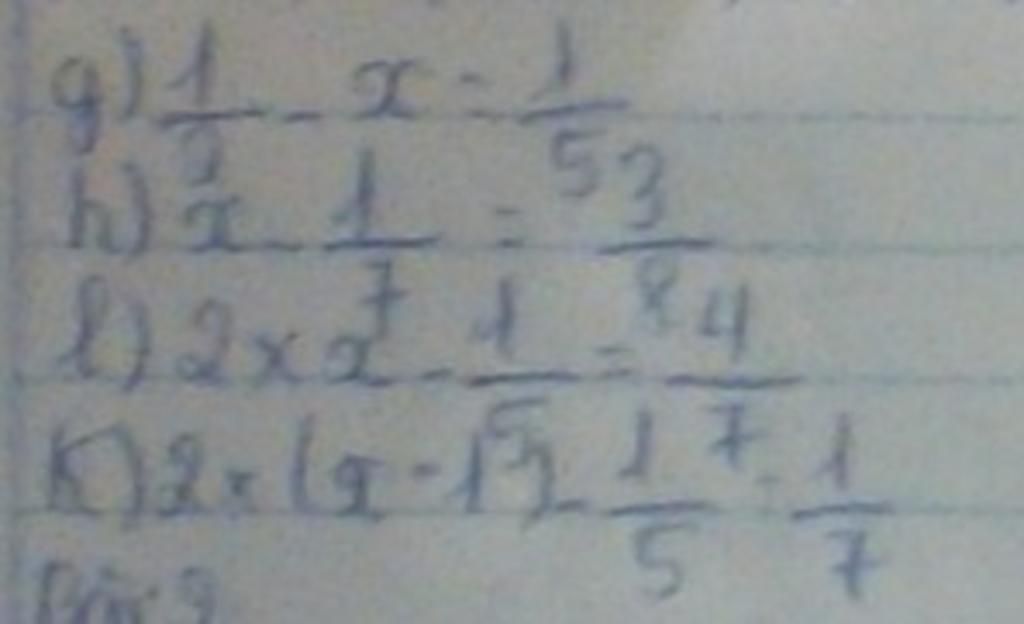 g) 1/3 - x = 1/5
h) x - 1/7 = 3/8
l) 2 × x - 1/5 = 4/7
k) 2 × (x - 1) - 1/5 = 1/7